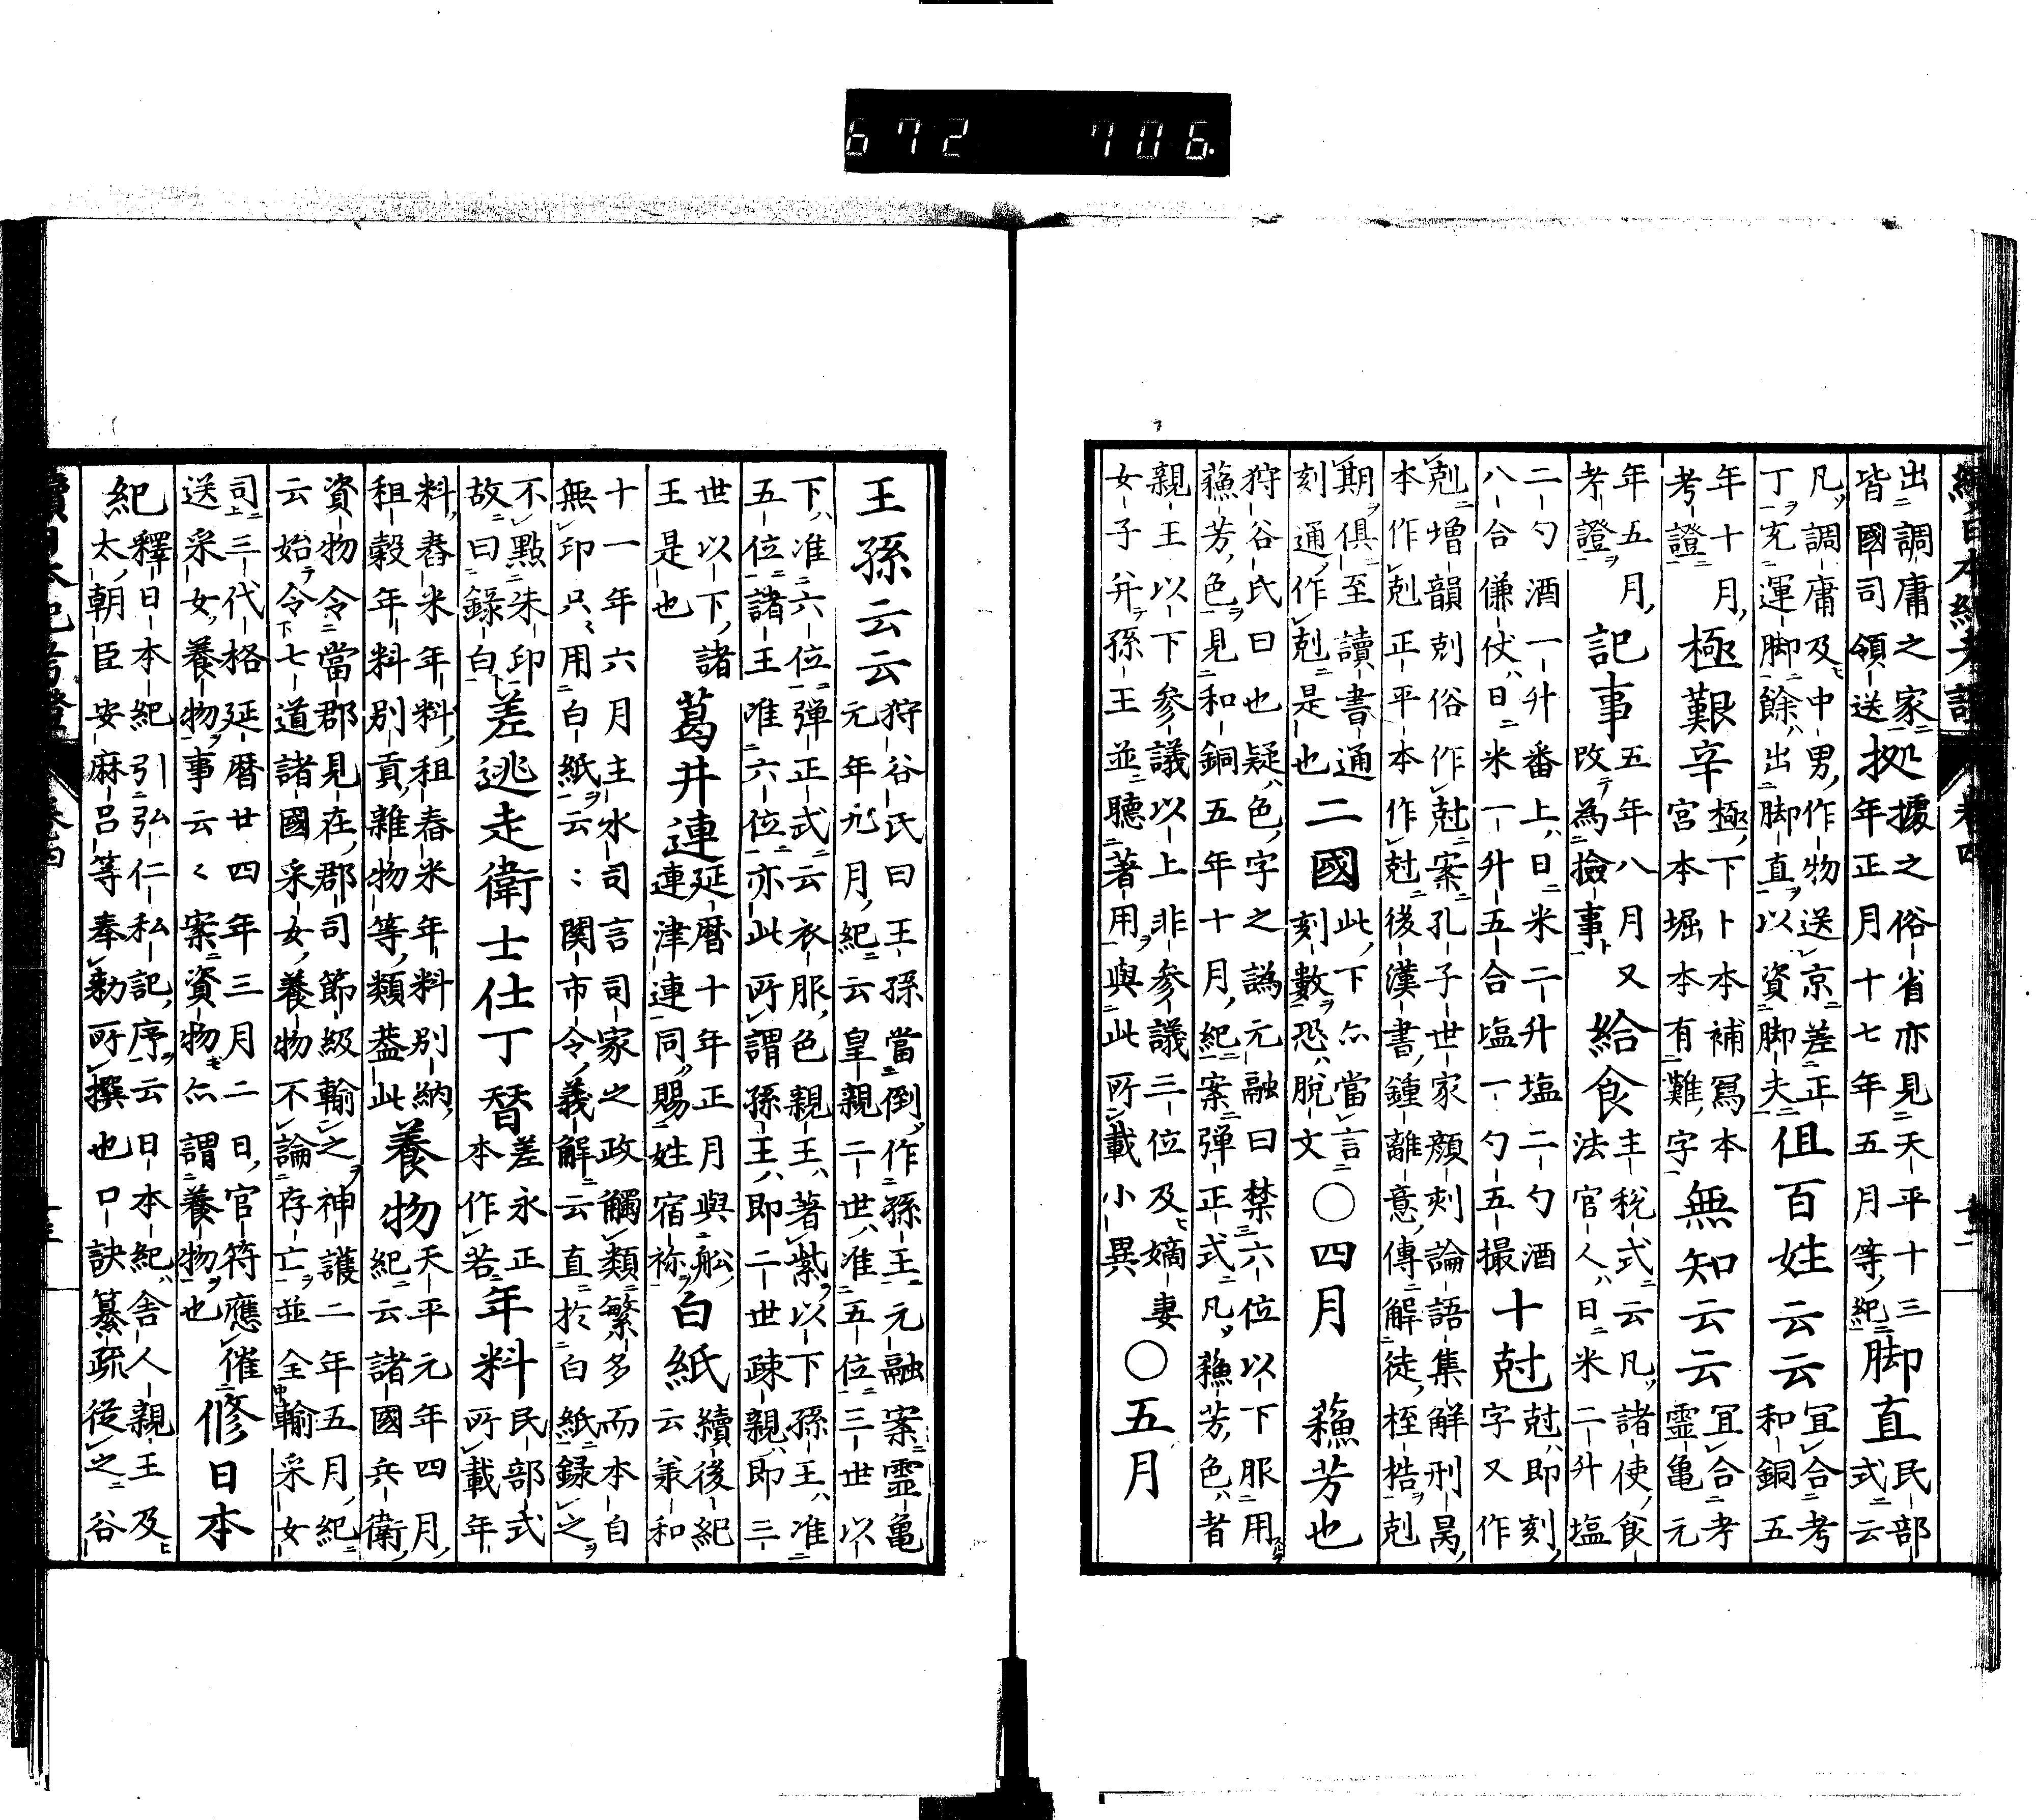 672 706
出調庸之家
皆國司領送
拠
據之俗省亦見天平十三
年正月十七年五月等紀
脚直
民部
式云
凡調庸及中男作物送京差正
丁充運脚餘出脚直以資脚夫
但百姓云云
宜合考
和銅五
年十月
考證
極艱辛
極下卜本補冩本
宮本堀本有難字
無知云云
宜合考
霊亀元
年五月
考證
記事
五年八月又
改為撿事
給食
主税式云凡諸使食
法官人日米二升塩
二勺酒一升番上日米二升塩二勺酒
八合傔仗日米一升五合塩一勺五撮
十尅
尅即刻
字又作
剋増韻剋俗作尅案孔子世家顔刻論語集解刑昺
本作剋正平本作尅後漢書鍾離意傳解徒桎梏剋
期俱至讀書通
刻通作剋是也
二國
此下亦當言
刻數恐脱文
〇四月 蘓芳也
狩谷氏曰也疑色字之譌元融曰禁六位以下服用
蘓芳色見和銅五年十月紀案弾正式凡蘓芳色者
親王以下参議以上非参議三位及嫡妻
女子并孫王並聴著用與此所載小異
〇五月
王孫云云
狩谷氏曰王孫當倒作孫王元融案霊亀
元年九月紀云皇親二世准五位三世以
下准六位弾正式云衣服色親王著紫以下孫王准
五位諸王准六位亦此所謂孫王即二世疎親即三
世以下諸
王是也
葛井連
延暦十年正月與舩
連津連同賜姓宿祢
白紙
續後紀
云羕和
十一年六月主水司言司家之政觸類繁多而本自
無印只用白紙云々関市令義解云直於白紙録之
不點朱印
故曰録白
差逃走衛士仕丁替
差永正
本作若
年料
民部式
所載年
料舂米年料租舂米年料別納
租穀年料別貢雜物等類葢此
養物
天平元年四月
紀云諸國兵衛
資物令當郡見在郡司節級輸之神護二年五月紀
云始令七道諸國采女養物不論存亡並全輸采女
司三代格延暦廿四年三月二日官符應催
送采女養物事云々案資物亦謂養物也
修日本
紀
釋日本紀引弘仁私記序云日本紀舎人親王及
太朝臣安麻呂等奉勅所撰也口訣纂疏從之谷